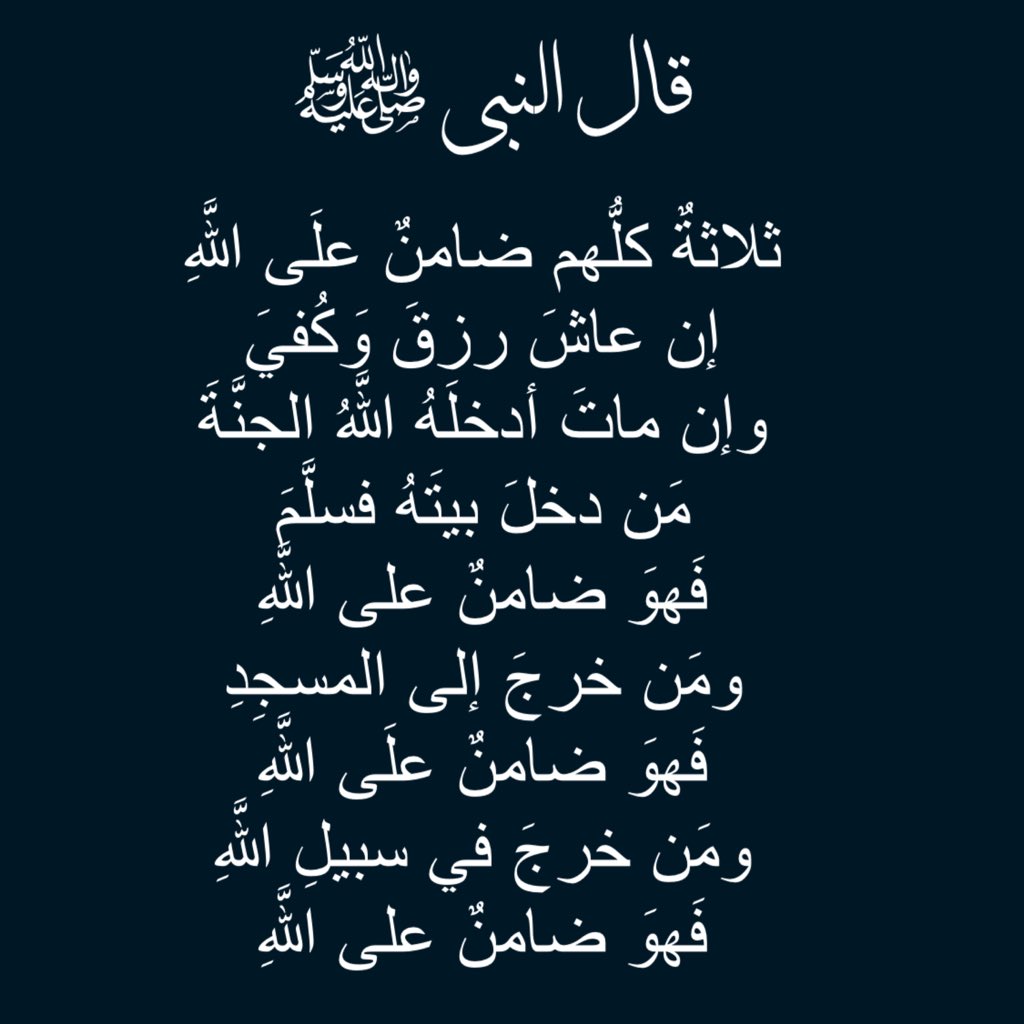 قال النبي ﷺ
ثلاثةٌ كلُّهم ضامنٌ علَى اللَّهِ
إن عاشَ رزقَ وَكُفيَ
وإن ماتَ أدخلَهُ اللَّهُ الجنَّةَ
مَن دخلَ بيتَهُ فسلَّمَ
فَهوَ ضامنٌ على اللَّهِ
ومَن خرجَ إلى المسجِدِ
فَهوَ ضامنٌ علَى اللَّهِ
ومَن خرجَ في سبيلِ اللَّهِ
فَهوَ ضامنٌ على اللَّهِ